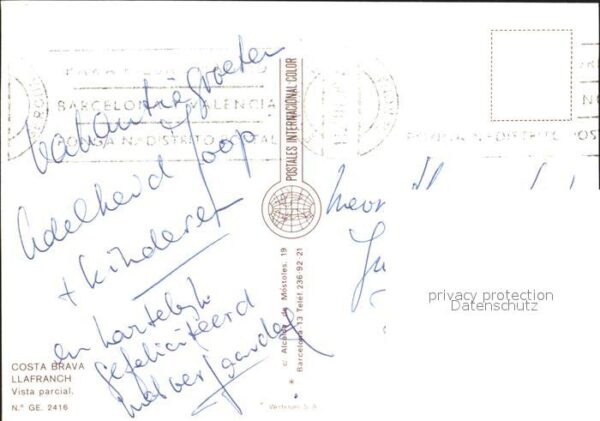 Vakantiegroeten
Adelheid Joop
+ kinderen
en hartelijk
gefeliciteerd
met verjaardag
BARCELONA Y VALENCIA
PONGA N.º DISTRITO POSTAL
PONGA N.º DISTRITO POS
POSTALES INTERNACIONAL COLOR
c. Alcalde de Móstoles, 19
Barcelona 13 Teléf. 236-92-21
COSTA BRAVA
LLAFRANCH
Vista parcial.
N.º GE. 2416
privacy protection
Datenschutz